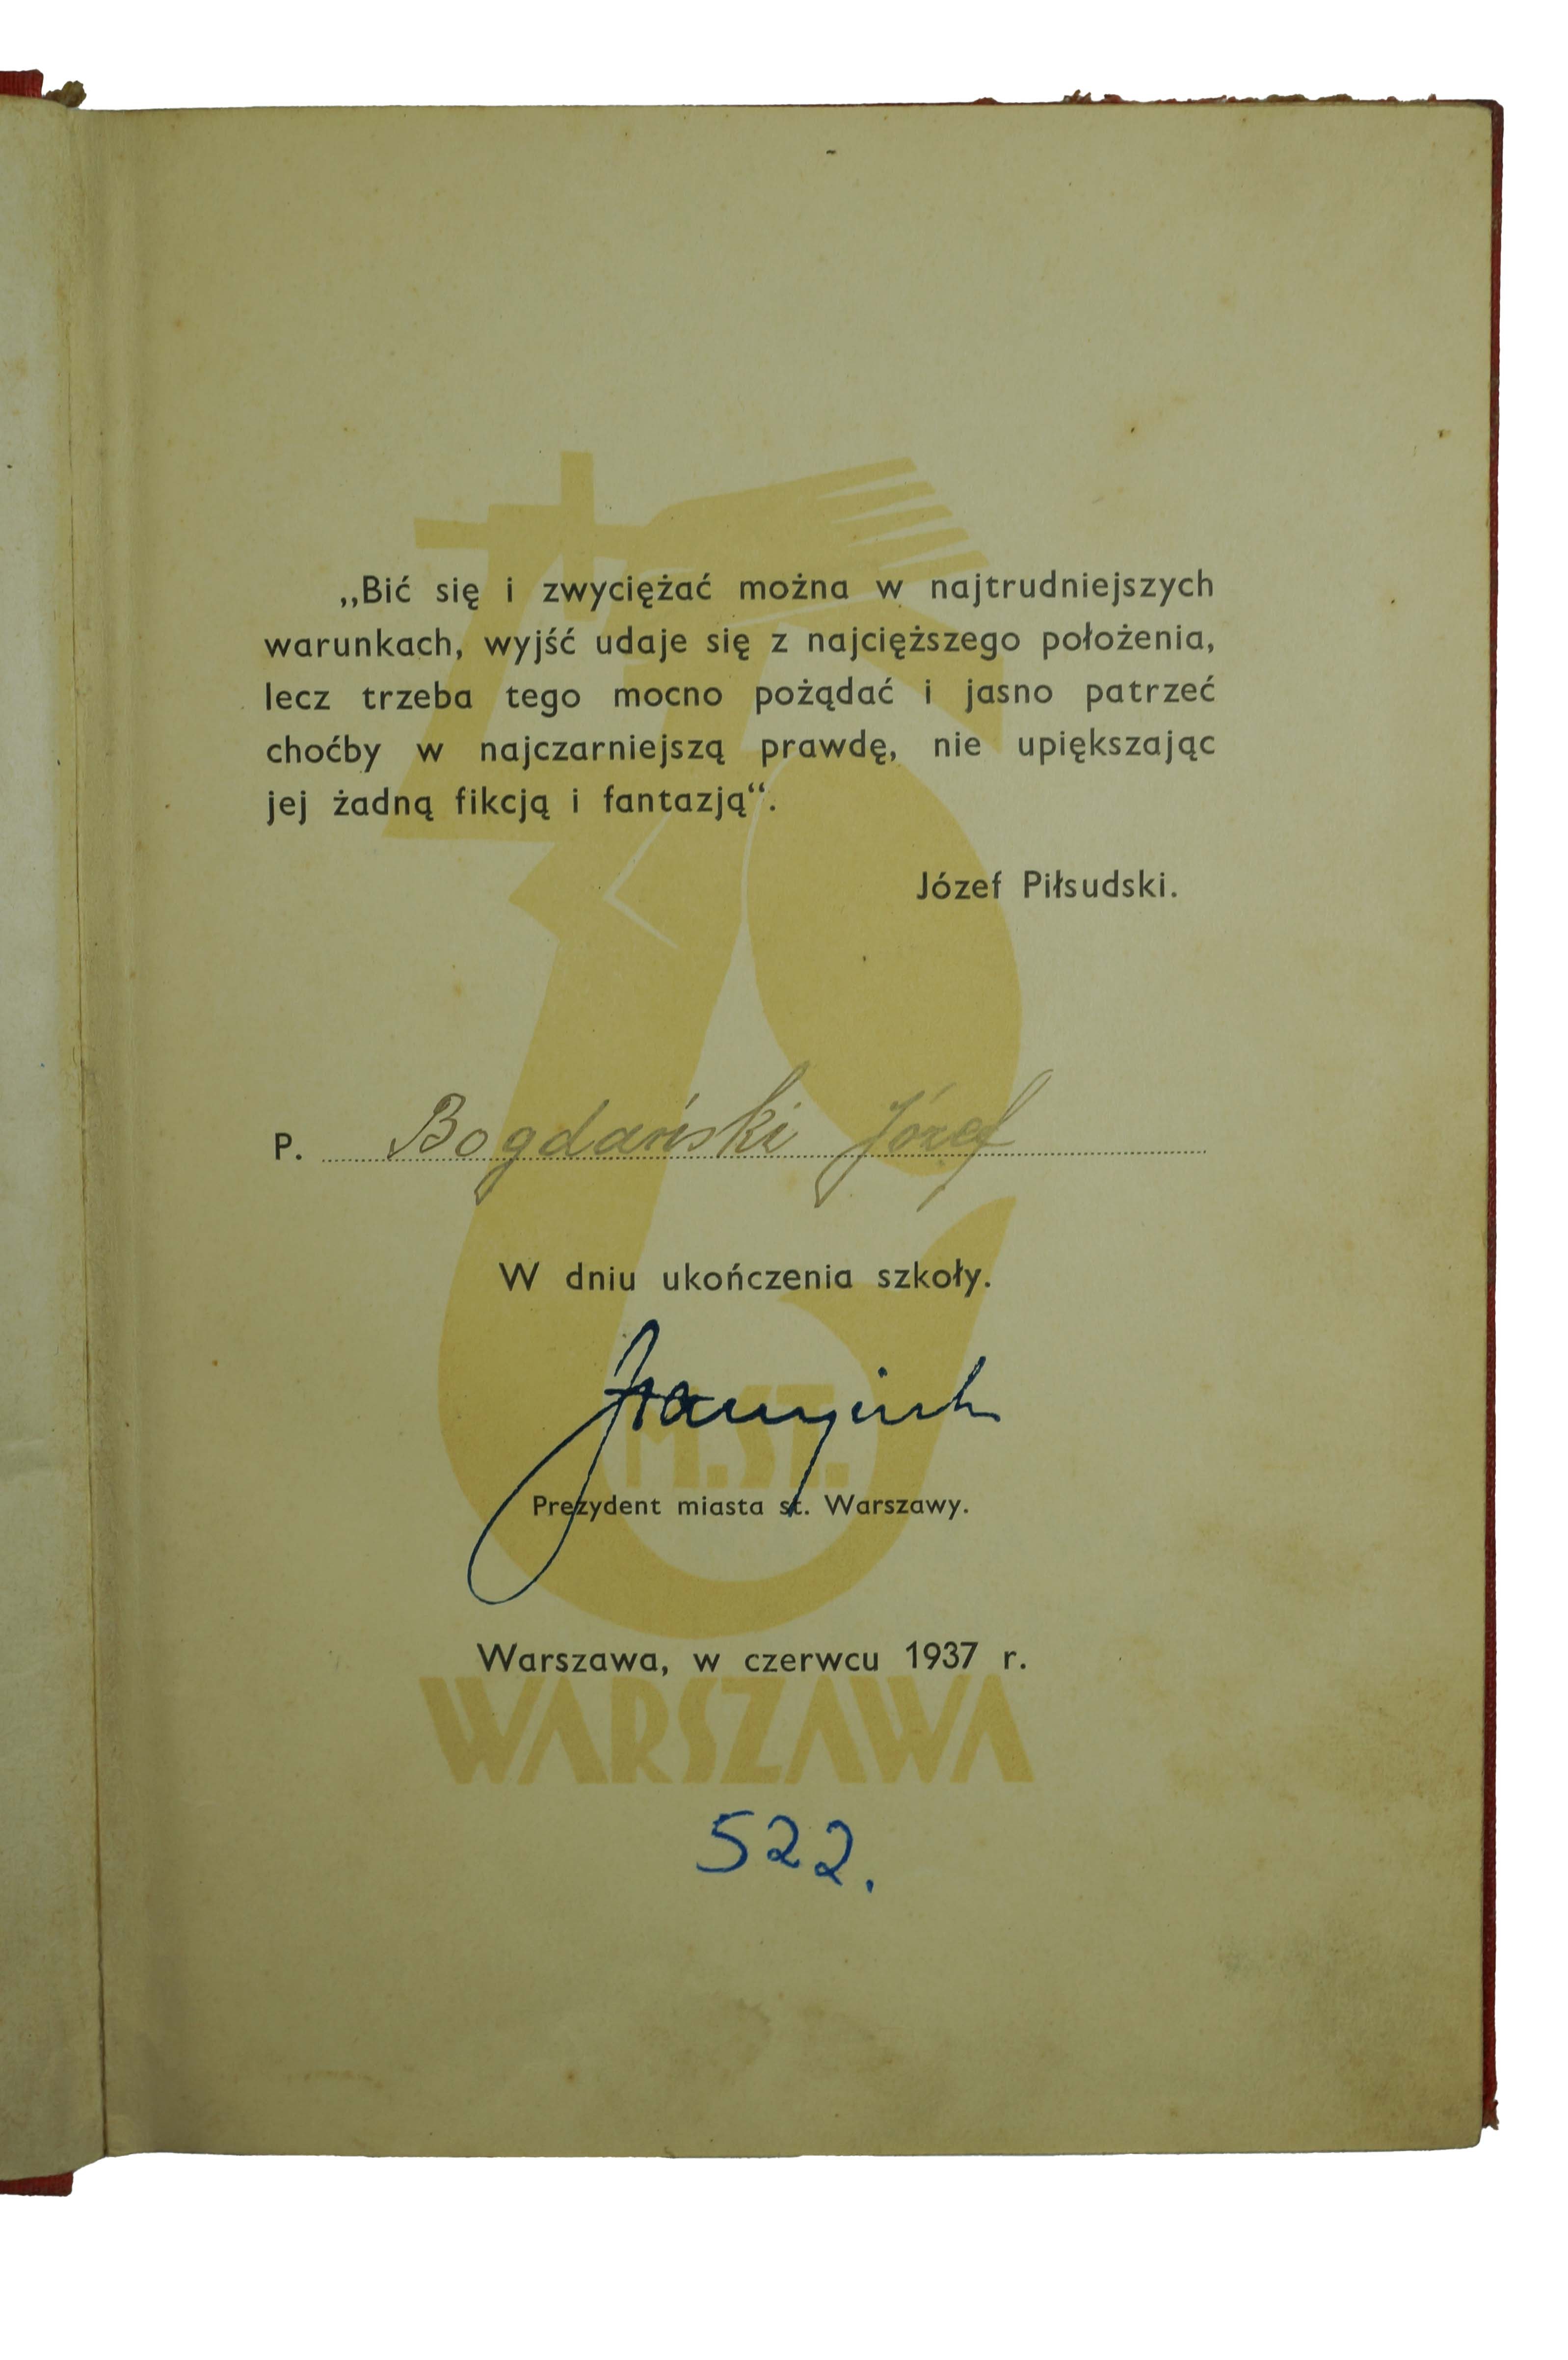 „Bić się i zwyciężać można w najtrudniejszych
warunkach, wyjść udaje się z najcięższego położenia,
lecz trzeba tego mocno pożądać i jasno patrzeć
choćby w najczarniejszą prawdę, nie upiększając
jej żadną fikcją i fantazją“.
Józef Piłsudski.
P. Bogdański Józef
W dniu ukończenia szkoły.
M.ST.
Prezydent miasta st. Warszawy.
Warszawa, w czerwcu 1937 r.
WARSZAWA
522.